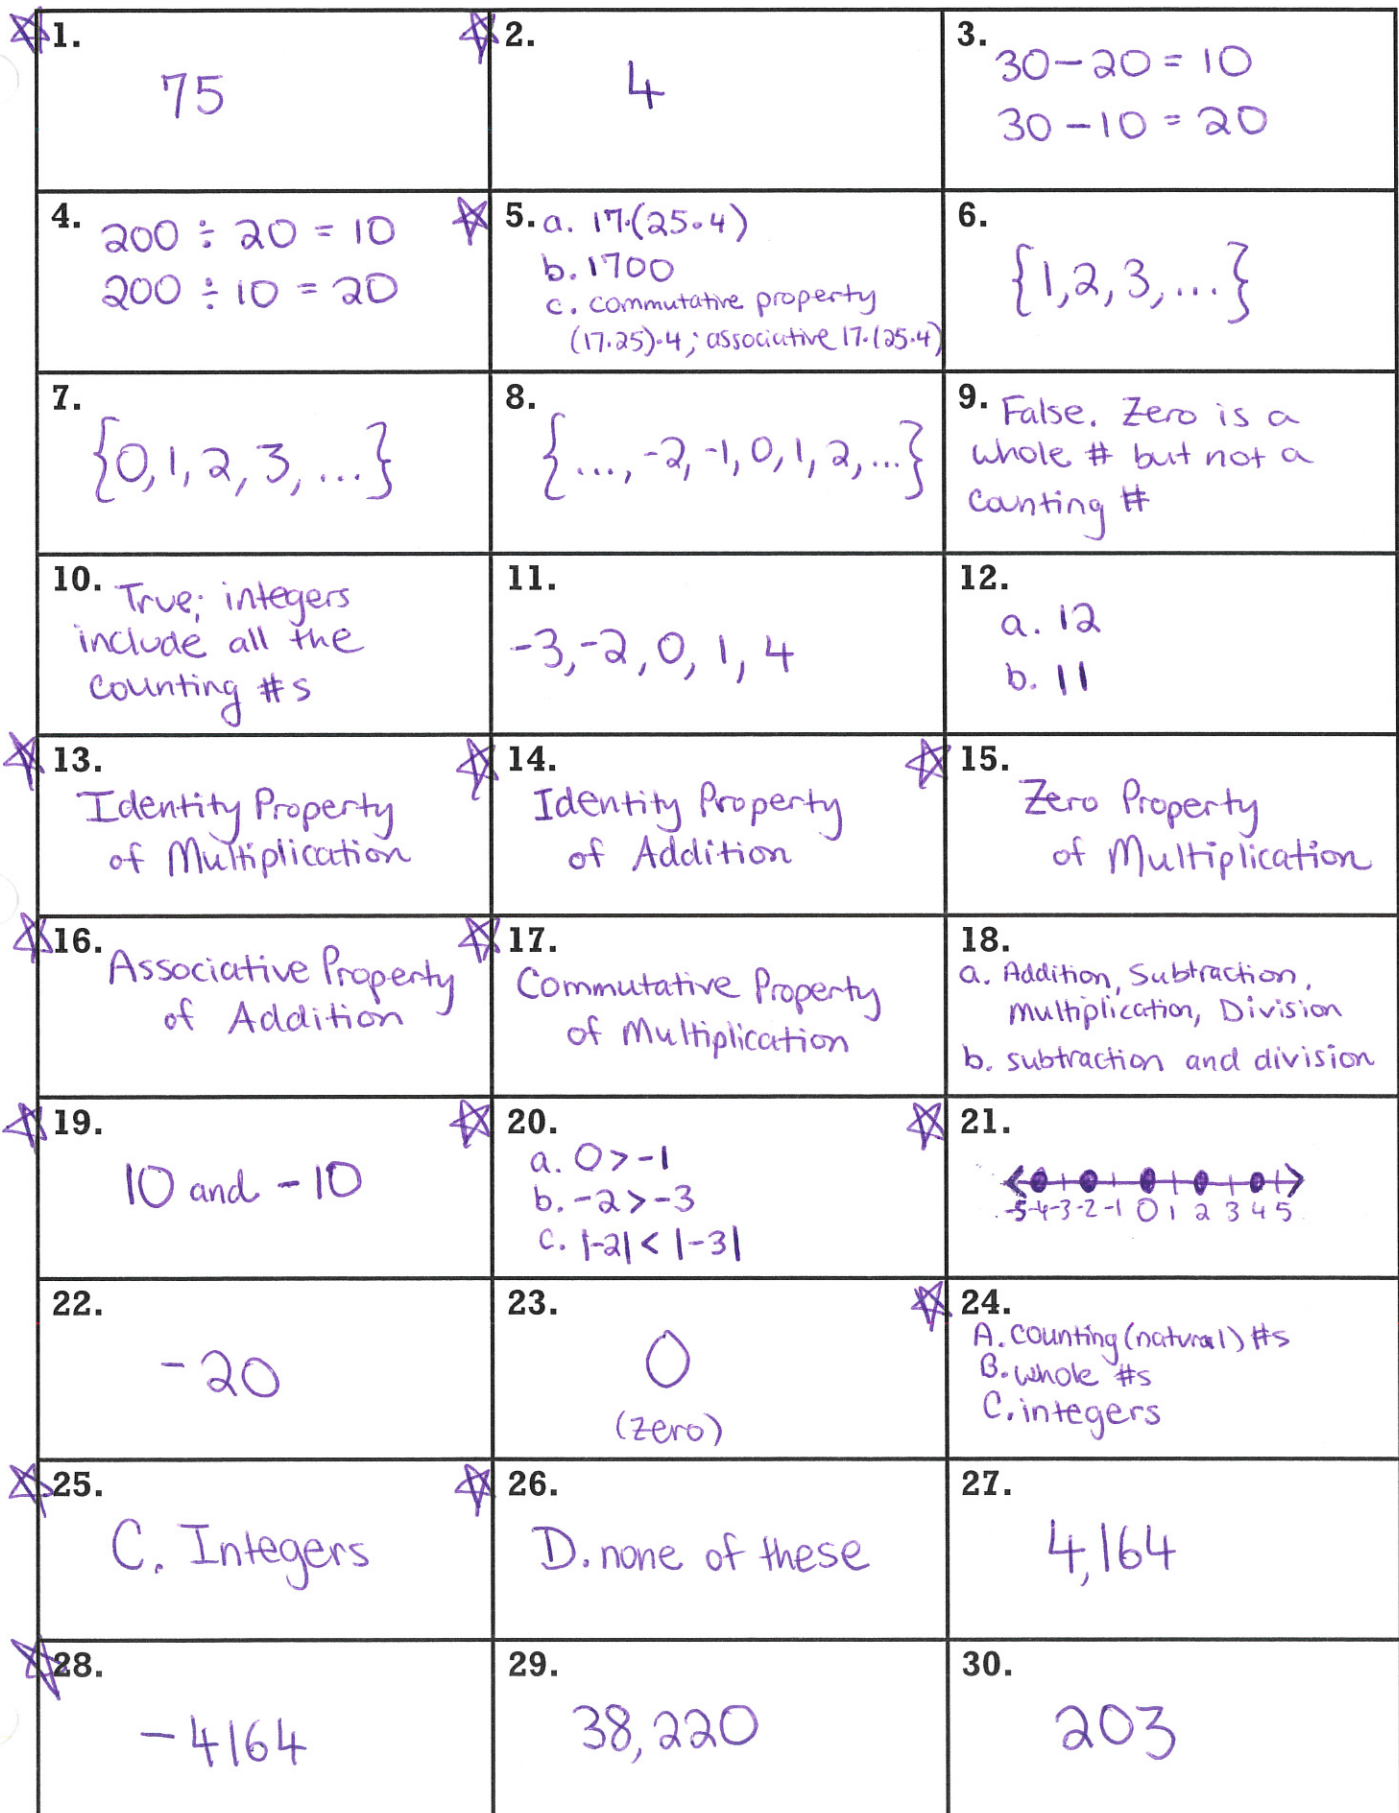 1.
75
2.
4
3.
30-20 = 10
30-10 = 20
4.
200 ÷ 20 = 10
200 ÷ 10 = 20
5. a. 17·(25·4)
b. 1700
c. commutative property
(17·25)·4; associative 17·(25·4)
6.
{1,2,3,...}
7.
{0,1,2,3,...}
8.
{...,-2,-1,0,1,2,...}
9. False. Zero is a
whole # but not a
counting #
10. True; integers
include all the
counting #s
11.
-3,-2,0,1,4
12.
a. 12
b. 11
13.
Identity Property
of Multiplication
14.
Identity Property
of Addition
15.
Zero Property
of Multiplication
16.
Associative Property
of Addition
17.
Commutative Property
of Multiplication
18.
a. Addition, Subtraction,
multiplication, Division
b. subtraction and division
19.
10 and -10
20.
a. 0>-1
b. -2>-3
c. |-2|<|-3|
21.
-5-4-3-2-1 0 1 2 3 4 5
22.
-20
23.
0
(zero)
24.
A. counting (natural) #s
B. whole #s
C. integers
25.
C. Integers
26.
D. none of these
27.
4,164
28.
-4164
29.
38,220
30.
203